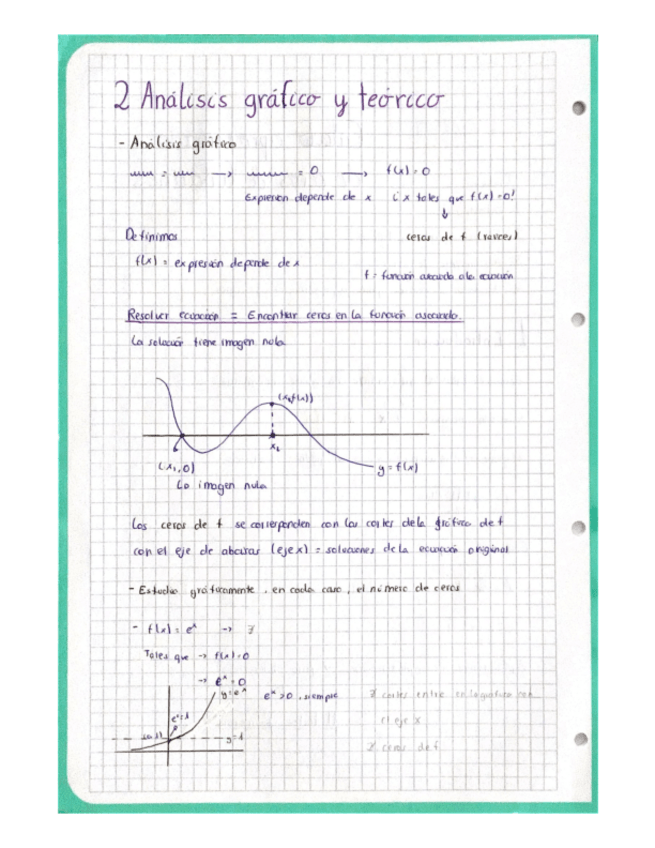 2 Análisis gráfico y teórico
- Análisis gráfico
= → = 0 → f(x) = 0
Expresión depende de x ¿x tales que f(x)=0?
↓
Definimos ceros de f (raíces)
f(x) = expresión depende de x
f = función asociada a la ecuación
Resolver ecuación = Encontrar ceros en la función asociada.
La solución tiene imagen nula
(x₂, f(x₂))
x₂
(x₁,0) y = f(x)
La imagen nula
Los ceros de f se corresponden con los cortes de la gráfica de f
con el eje de abcisas (eje x) = soluciones de la ecuación original
- Estudia gráficamente, en cada caso, el número de ceros
- f(x) = eˣ →
Tales que → f(x)=0
→ eˣ = 0
y=eˣ eˣ>0, siempre ∄ cortes entre la gráfica con
el eje x
∄ ceros de f